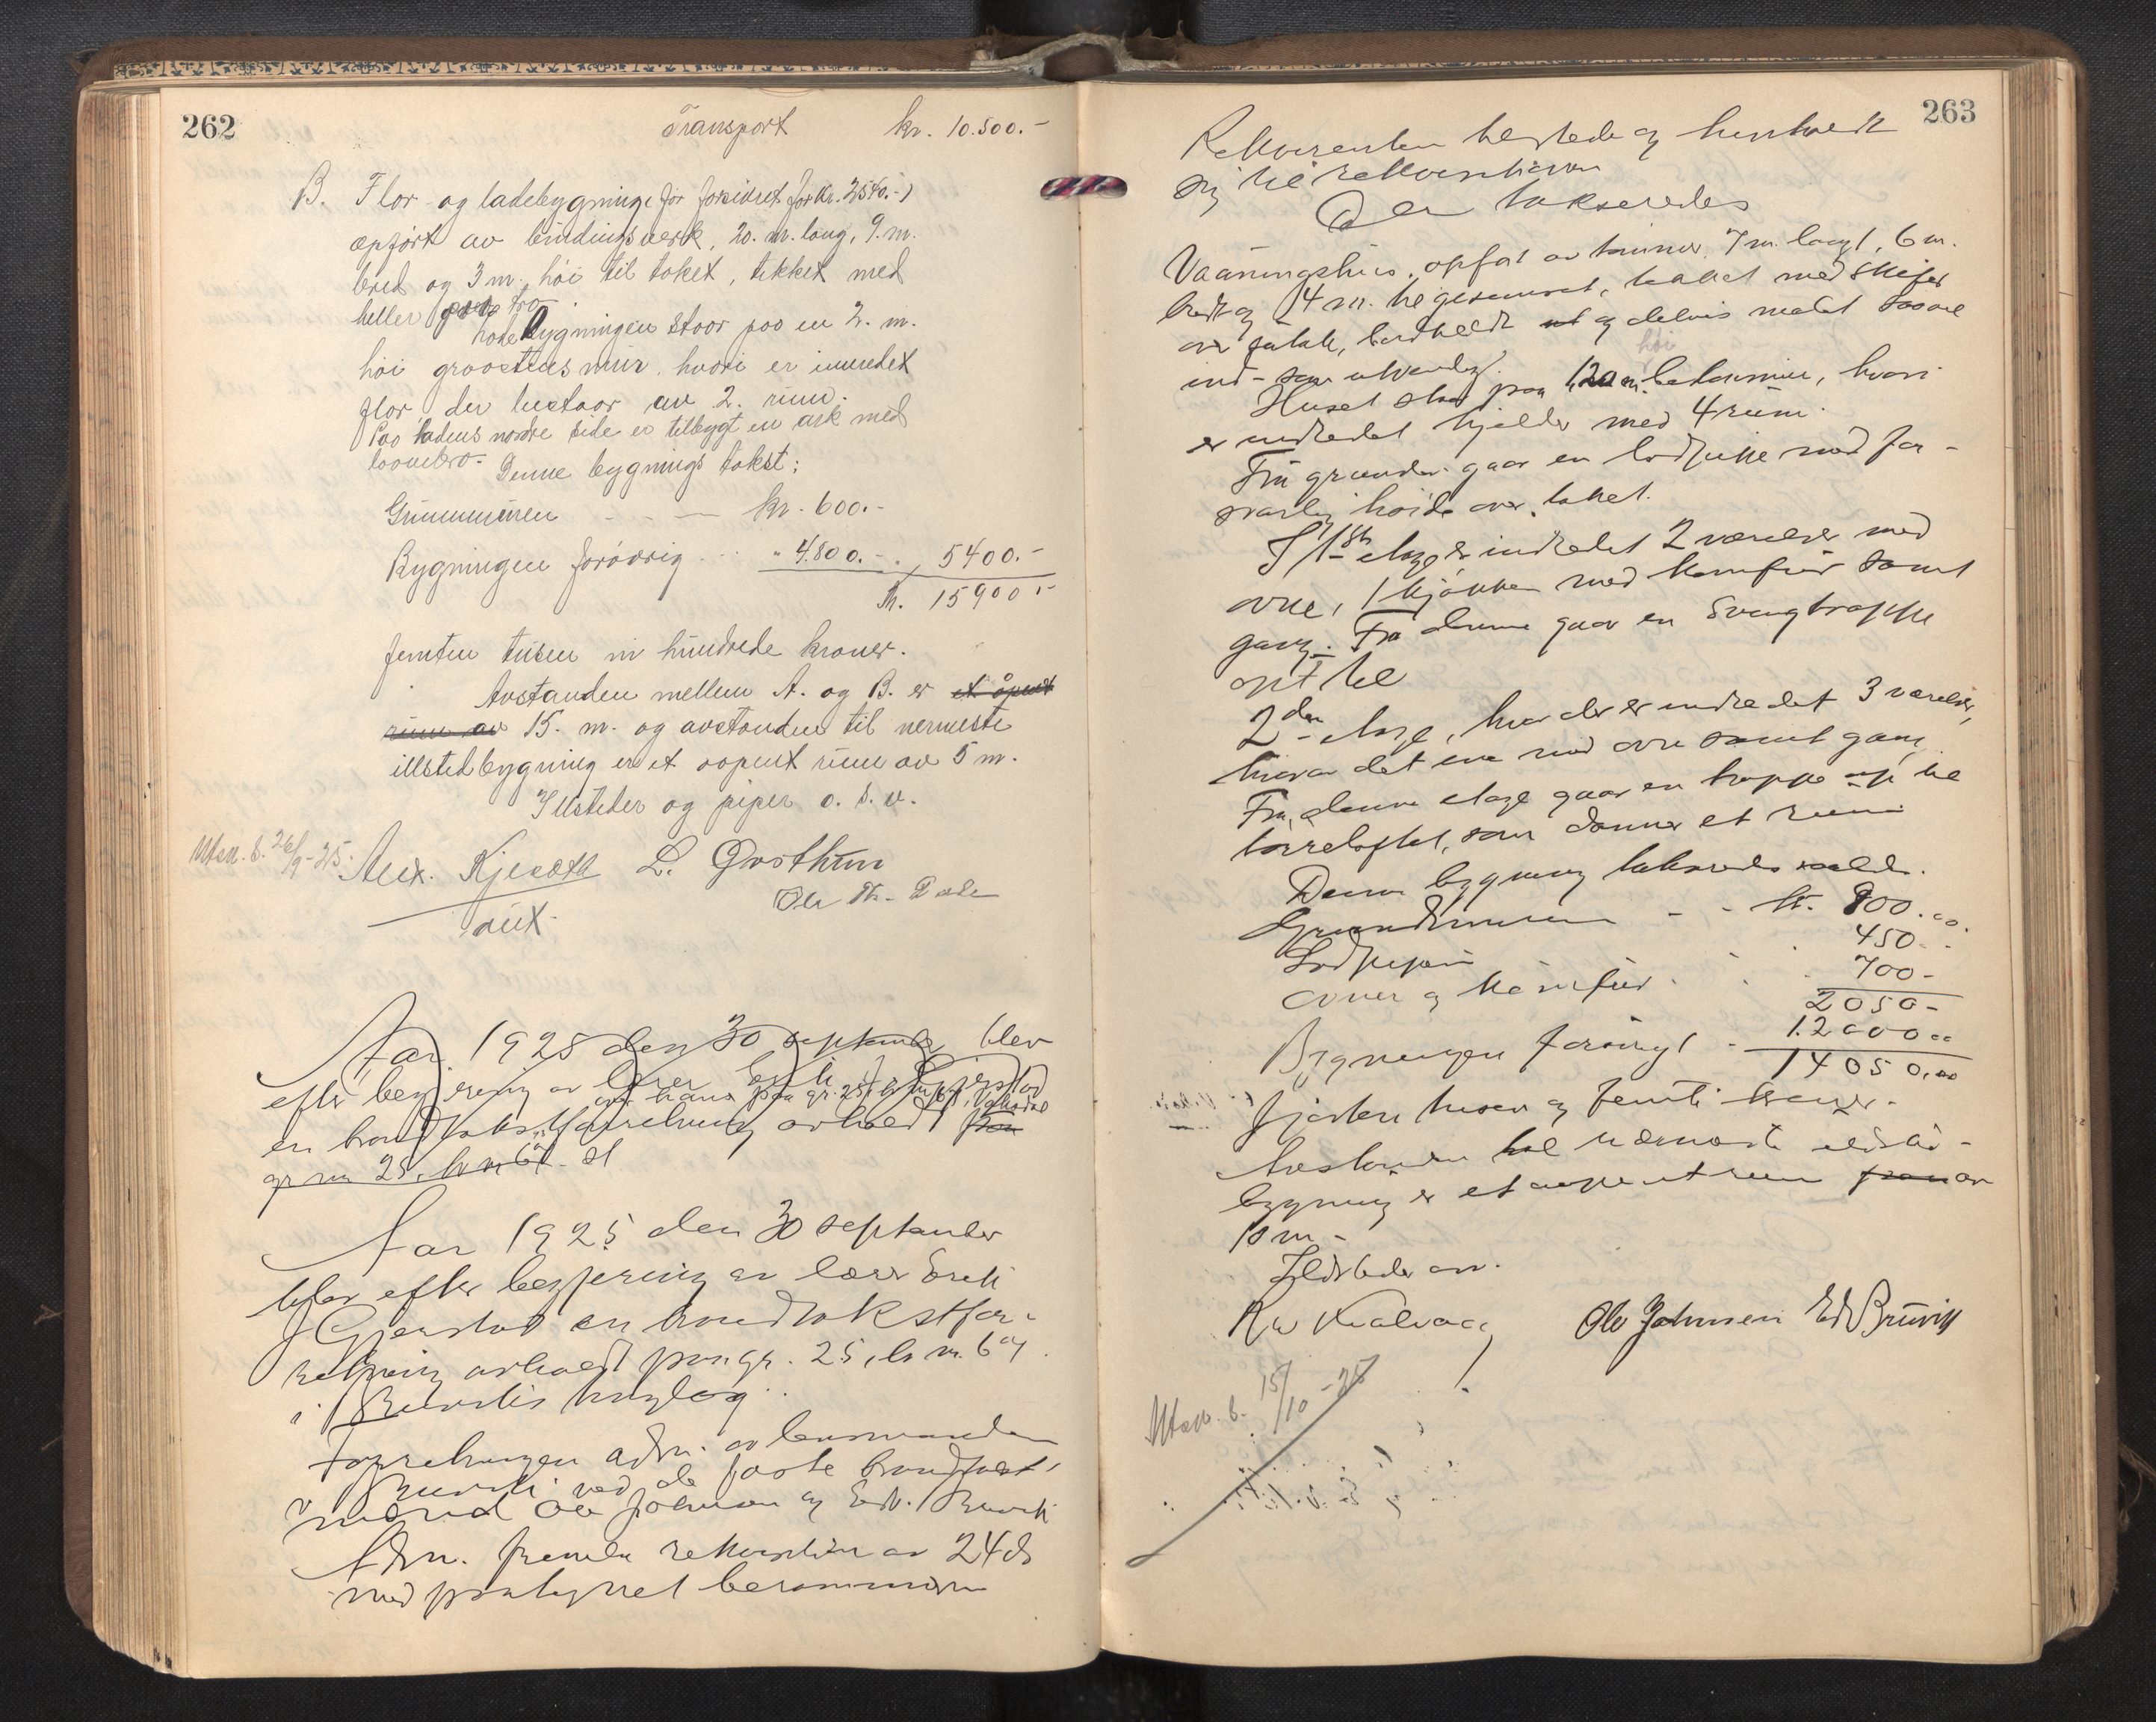 262
Transport kr. 10.500.-
B. Flor- og ladebygning (før forsikret for kr. 2540.-)
opført av bindingsverk, 20. m. lang, 9. m.
bred og 3 m. høi til taket, tekket med
heller paa tro.
Ladebygningen staar paa en 2. m.
høi graastens mur, hvori er innredet
flor der bestaar av 2. rum.
Paa ladens nordre side er tilbygt en ark med
laavebro. Denne bygnings takst:
Grunnmuren - - - kr. 600.-
Bygningen forøvrig - - " 4.800.- " 5400.-
Kr. 15900.-
femten tusen ni hundrede kroner.
Avstanden mellem A. og B. er et åpent
rum av 15. m. og avstanden til nermeste
illstedbygning er et aapent rum av 5 m.
Illsteder og piper o. s. v.
Utsn. b. 26/9-25.
Alex. Kjesæth L. Drosthun
Ole Th. Dale
aux.
Aar 1925 den 30 september blev
efter begjering av lærer Erik J. Gjerstad
over hans paa gr. 25, br. nr. 67, Vaksdal
en brandtakstforretning avholdt paa
gr nr 25, br nr 67 - st
Aar 1925 den 30 september
blev efter begjæring av lærer Erik
J Gjerstad en brandtakstfor-
retning avholdt paa gr. 25, br nr. 67
i Bruviks tinglag.
Forretningen adm. av lensmanden
i Bruvik ved de faste brandtakst-
mænd Ole Johnsen og Edv. Bruvik
Adm. fremla rekvisition av 24 ds
med paategnet berammelse
263
Rekvirenten tilstede og henholdt
sig til rekvisitionen
Der takseredes
Vaaningshus, opført av tømmer, 7 m. langt, 6 m.
bredt og 4 m. til gesimset, tækket med skifer
over sutak, bordklædt ut og delvis malet saavel
ind- som utvendig.
høi
Huset staar paa 1,20 m. betonmur, hvori
er indredet kjelder med 4 rum.
Fra grunden gaar en lodpipe med for-
svarlig høide over taket.
I 1ste etage er indredet 2 værelser med
ovne, 1 kjøkken med komfur samt
gang. Fra denne gaar en svingtrappe
op til
2den etage, hvor der er indredet 3 værelser,
hvorav det ene med ovn samt gang.
Fra denne etage gaar en trappe op til
tørreloftet, som danner et rum
Denne bygning takseredes saaledes.
Grundmuren - - kr. 900.00
Lodpipen 450.-
Ovner og komfur. 700-
2050-
Bygningen forøvrigt - 12000 00
14050,00
fjorten tusen og femti kroner.
Avstanden til nærmeste ildsted-
bygning er et aapent rum paa av
10 m -
Ildsteder osv.
Ole Johnsen Edv Bruvik
Utsn. b. 15/10-25